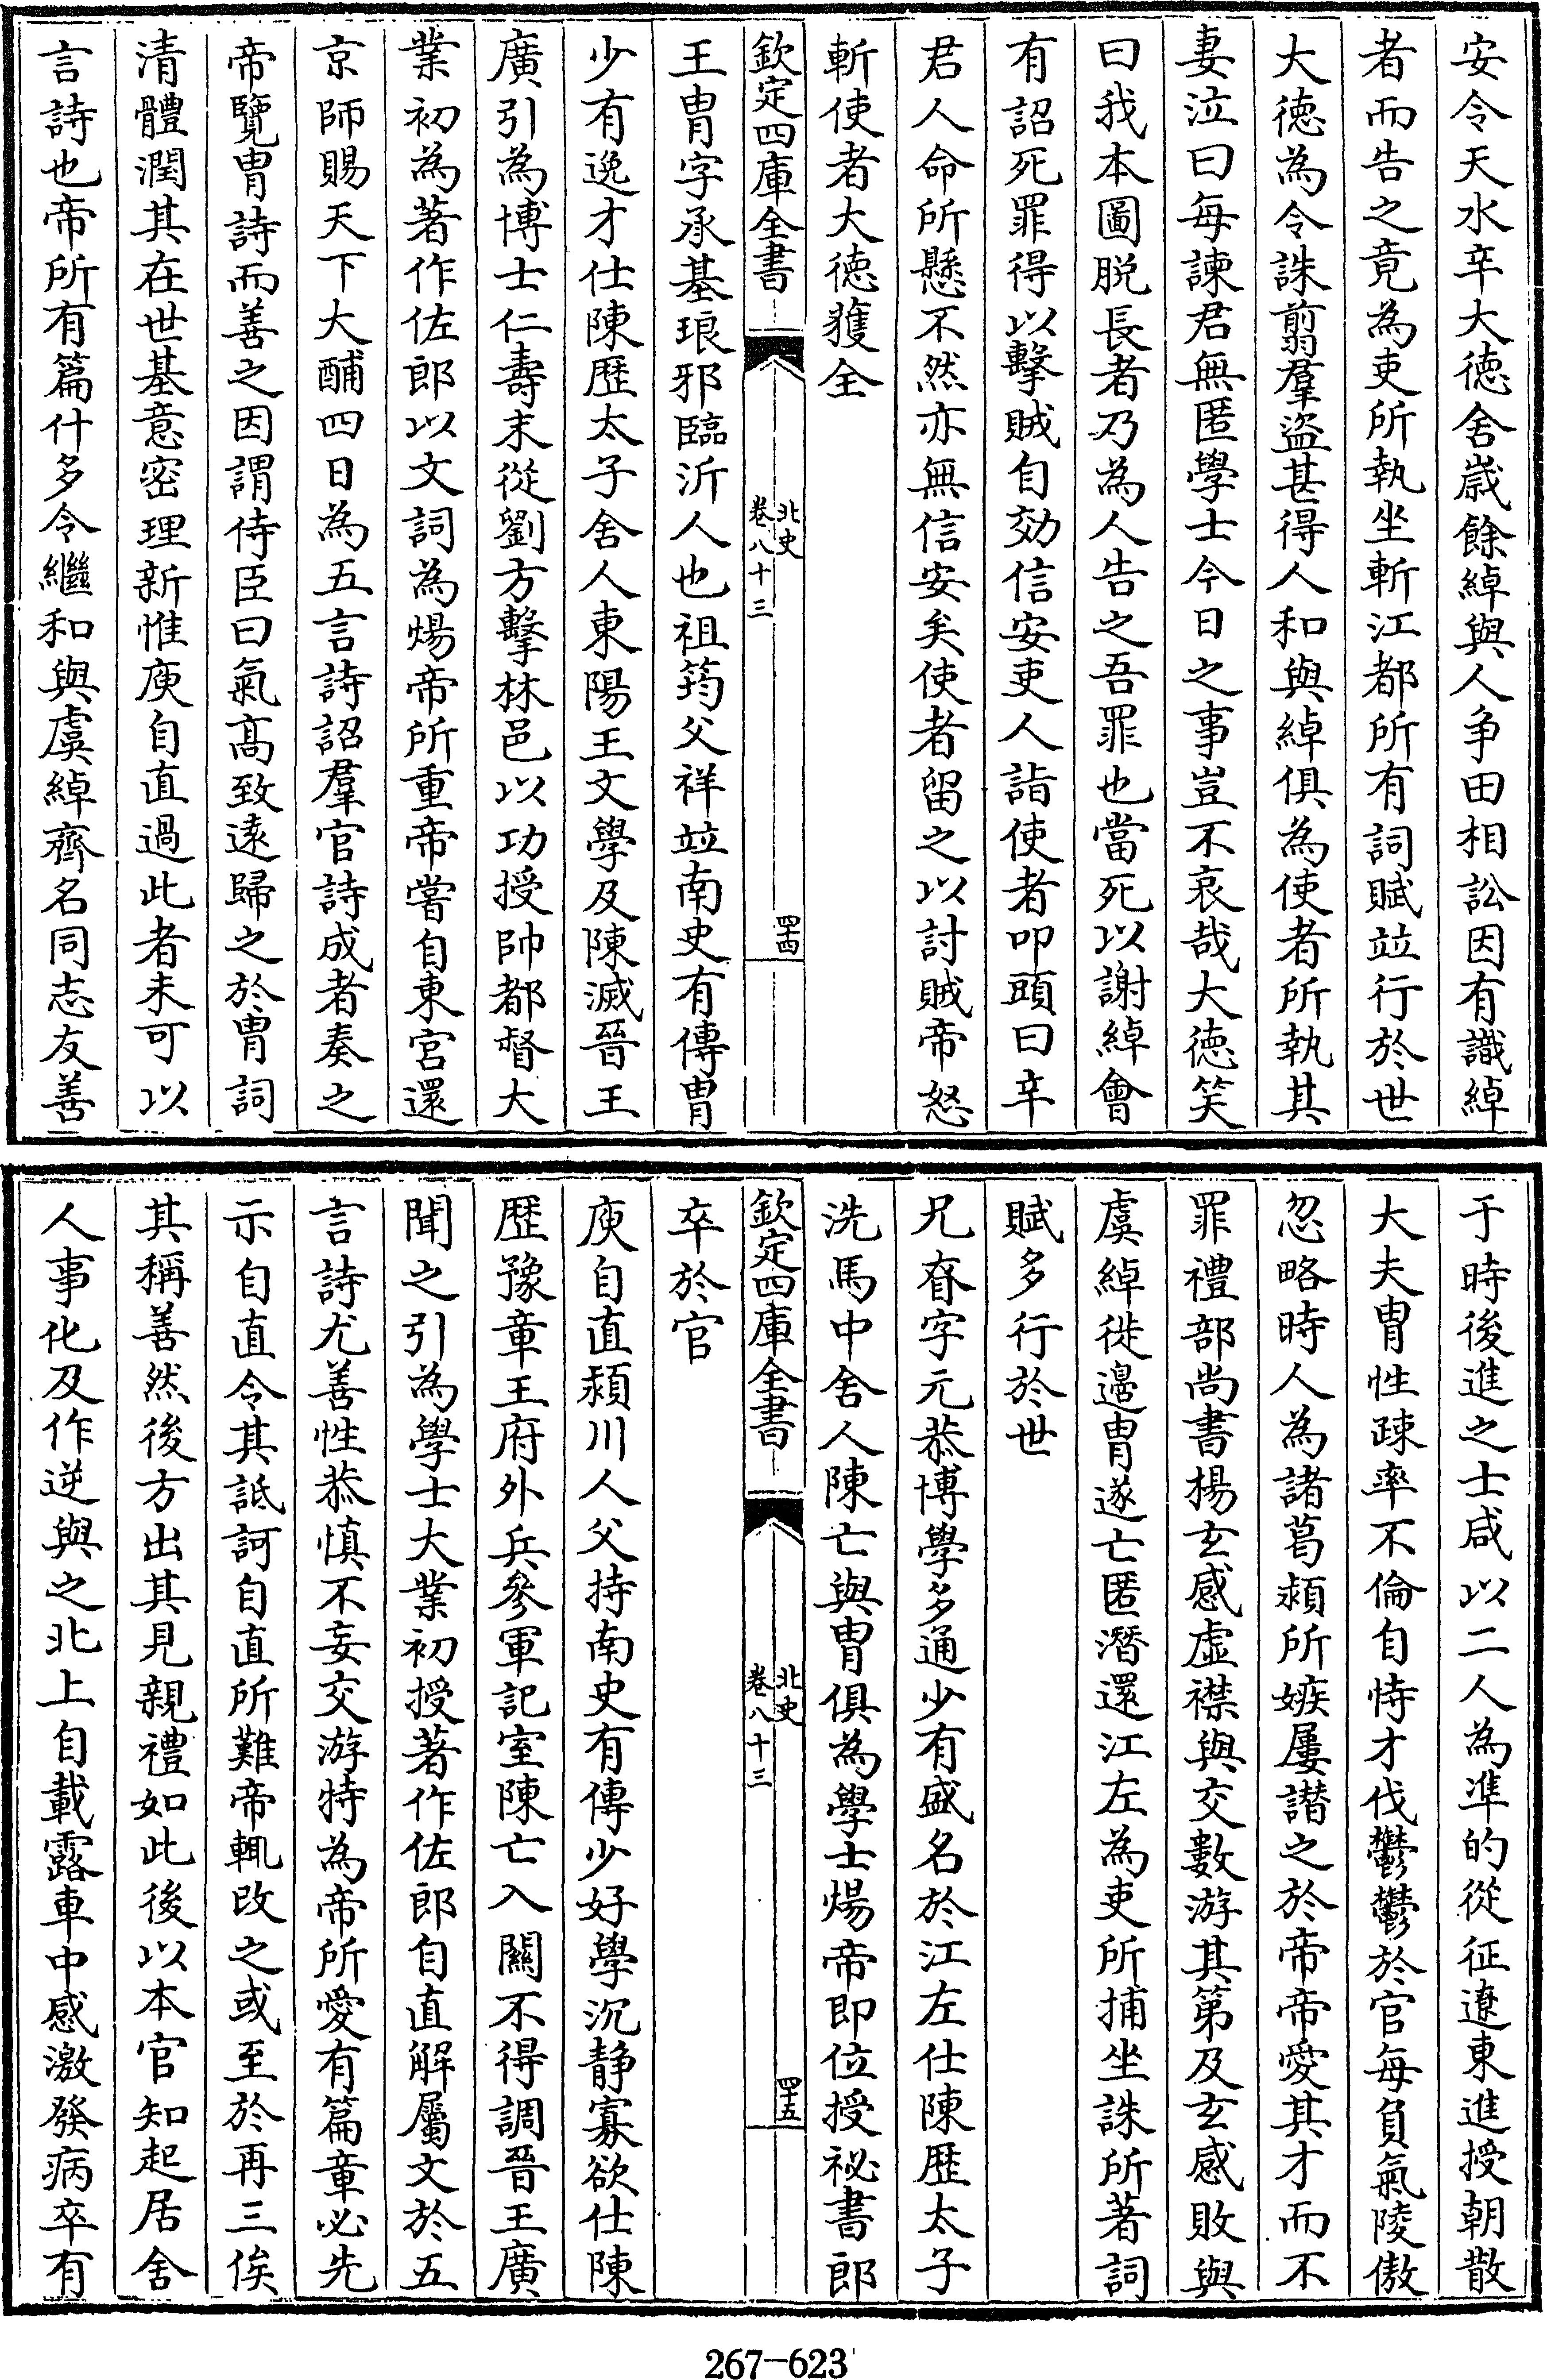 安令天水辛大徳舍歳餘綽與人争田相訟因有識綽
者而告之竟為吏所執坐斬江都所有詞賦竝行於世
大徳為令誅翦羣盜甚得人和與綽俱為使者所執其
妻泣曰每諫君無匿學士今日之事豈不哀哉大徳笑
曰我本圖脱長者乃為人告之吾罪也當死以謝綽會
有詔死罪得以擊賊自効信安吏人詣使者叩頭曰辛
君人命所懸不然亦無信安矣使者留之以討賊帝怒
斬使者大徳獲全
欽定四庫全書
北史
卷八十三
四十四
王胄字承基琅邪臨沂人也祖筠父祥竝南史有傳胄
少有逸才仕陳歴太子舍人東陽王文學及陳滅晉王
廣引為博士仁壽末從劉方擊林邑以功授帥都督大
業初為著作佐郎以文詞為煬帝所重帝嘗自東宮還
京師賜天下大酺四日為五言詩詔羣官詩成者奏之
帝覽胄詩而善之因謂侍臣曰氣髙致遠歸之於胄詞
清體潤其在世基意密理新惟庾自直過此者未可以
言詩也帝所有篇什多令繼和與虞綽齊名同志友善
于時後進之士咸以二人為凖的從征遼東進授朝散
大夫胄性疎率不倫自恃才伐鬱鬱於官每負氣陵傲
忽略時人為諸葛潁所嫉屢譖之於帝帝愛其才而不
罪禮部尚書楊玄感虚襟與交數游其第及玄感敗與
虞綽徙邊胄遂亡匿潛還江左為吏所捕坐誅所著詞
賦多行於世
兄昚字元恭博學多通少有盛名於江左仕陳歴太子
洗馬中舍人陳亡與胄俱為學士煬帝即位授祕書郎
欽定四庫全書
北史
卷八十三
四十五
卒於官
庾自直潁川人父持南史有傳少好學沉静寡欲仕陳
歴豫章王府外兵參軍記室陳亡入關不得調晉王廣
聞之引為學士大業初授著作佐郎自直解屬文於五
言詩尤善性恭慎不妄交游特為帝所愛有篇章必先
示自直令其詆訶自直所難帝輒改之或至於再三俟
其稱善然後方出其見親禮如此後以本官知起居舍
人事化及作逆與之北上自載露車中感激發病卒有
267-623